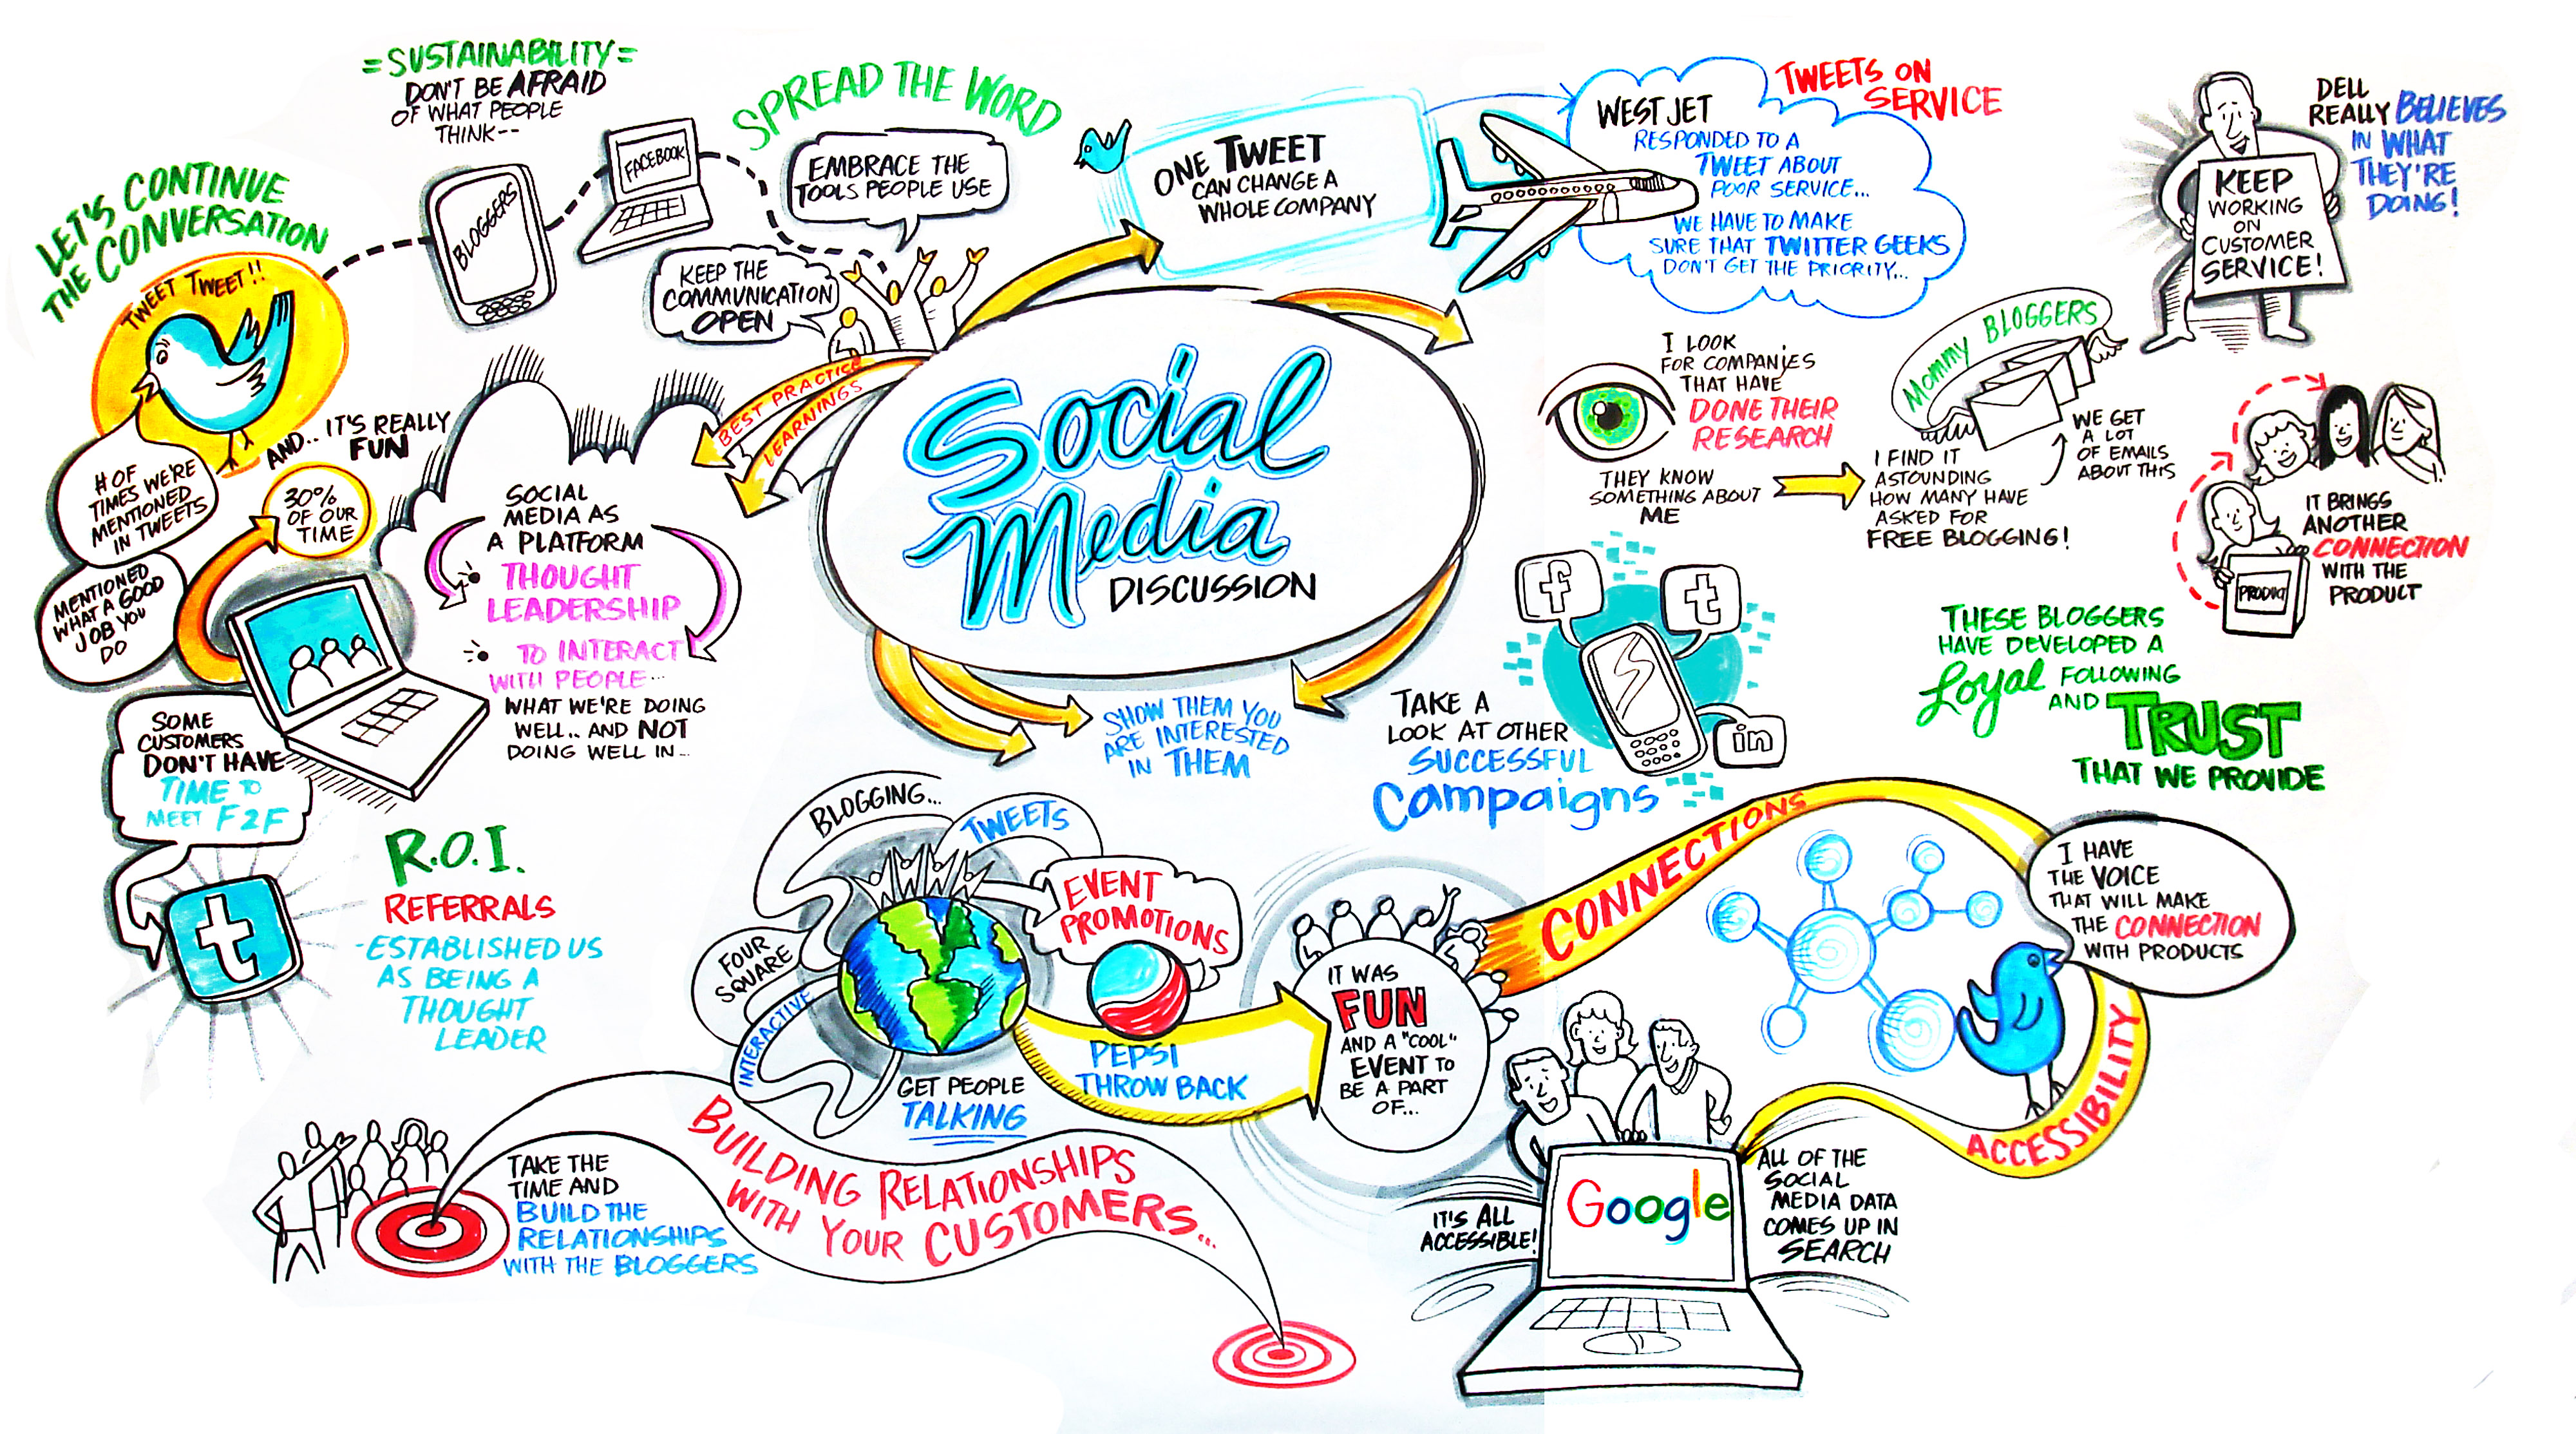 =SUSTAINABILITY=
DON'T BE AFRAID
OF WHAT PEOPLE
THINK--
SPREAD THE WORD
LET'S CONTINUE
THE CONVERSATION
TWEET TWEET!!
BLOGGERS
FACEBOOK
EMBRACE THE
TOOLS PEOPLE USE
KEEP THE
COMMUNICATION
OPEN
ONE TWEET
CAN CHANGE A
WHOLE COMPANY
TWEETS ON
SERVICE
WESTJET
RESPONDED TO A
TWEET ABOUT
POOR SERVICE...
WE HAVE TO MAKE
SURE THAT TWITTER GEEKS
DON'T GET THE PRIORITY...
DELL
REALLY BELIEVES
IN WHAT
THEY'RE
DOING!
KEEP
WORKING
ON
CUSTOMER
SERVICE!
BEST PRACTICE
LEARNINGS
Social
Media
DISCUSSION
AND.. IT'S REALLY
FUN
# OF
TIMES WE'RE
MENTIONED
IN TWEETS
30%
OF OUR
TIME
MENTIONED
WHAT A GOOD
JOB YOU
DO
SOCIAL
MEDIA AS
A PLATFORM
THOUGHT
LEADERSHIP
TO INTERACT
WITH PEOPLE...
WHAT WE'RE DOING
WELL.. AND NOT
DOING WELL IN...
SOME
CUSTOMERS
DON'T HAVE
TIME TO
MEET F2F
t
R.O.I.
REFERRALS
-ESTABLISHED US
AS BEING A
THOUGHT
LEADER
I LOOK
FOR COMPANIES
THAT HAVE
DONE THEIR
RESEARCH
THEY KNOW
SOMETHING ABOUT
ME
MOMMY BLOGGERS
WE GET
A LOT
OF EMAILS
ABOUT THIS
I FIND IT
ASTOUNDING
HOW MANY HAVE
ASKED FOR
FREE BLOGGING!
IT BRINGS
ANOTHER
CONNECTION
WITH THE
PRODUCT
PRODUCT
THESE BLOGGERS
HAVE DEVELOPED A
Loyal FOLLOWING
AND TRUST
THAT WE PROVIDE
SHOW THEM YOU
ARE INTERESTED
IN THEM
f
t
in
TAKE A
LOOK AT OTHER
SUCCESSFUL
Campaigns
BLOGGING...
TWEETS
EVENT
PROMOTIONS
FOUR
SQUARE
INTERACTIVE
GET PEOPLE
TALKING
PEPSI
THROW BACK
IT WAS
FUN
AND A "COOL"
EVENT TO
BE A PART
OF...
CONNECTIONS
I HAVE
THE VOICE
THAT WILL MAKE
THE CONNECTION
WITH PRODUCTS
ACCESSIBILITY
TAKE THE
TIME AND
BUILD THE
RELATIONSHIPS
WITH THE BLOGGERS
BUILDING RELATIONSHIPS
WITH YOUR CUSTOMERS...
IT'S ALL
ACCESSIBLE!
Google
ALL OF THE
SOCIAL
MEDIA DATA
COMES UP IN
SEARCH